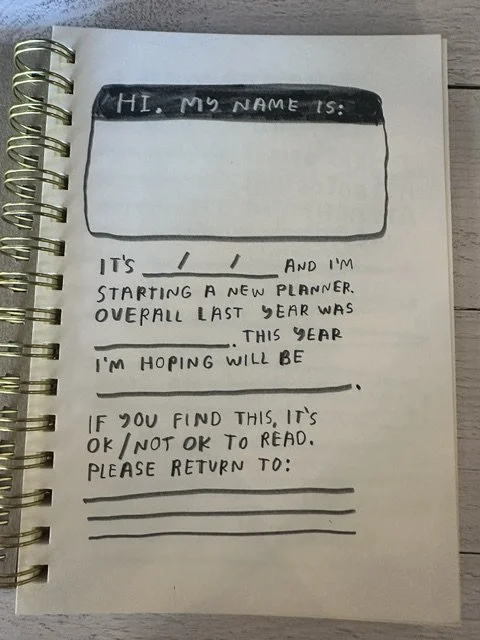 HI. MY NAME IS:
IT'S ___/___/___ AND I'M
STARTING A NEW PLANNER.
OVERALL LAST YEAR WAS
____________. THIS YEAR
I'M HOPING WILL BE
____________________.
IF YOU FIND THIS, IT'S
OK/NOT OK TO READ.
PLEASE RETURN TO: